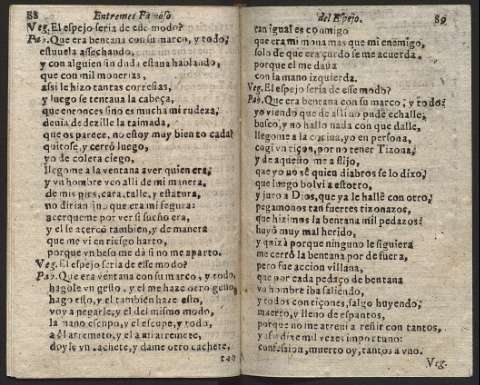 88 Entremes Famoso
Veg. El espejo seria de ese modo?
Pab. Que era bentana con su marco, y todo,
estuvela assechando,
y con alguien sin duda estaua hablando,
que con mil monerias,
assi le hizo tantas cortesias,
y luego se tentaua la cabeça,
que entonces si no es mucha mi rudeza,
deuia de dezille la taimada,
que os parece, no estoy muy bien tocada?
quitose, y cerrò luego,
yo de colera ciego,
llegome a la ventana a ver quien era,
y vn hombre veo alli de mi manera,
de mis pies, cara, talle, y estatura,
no dirian sino que era mi figura:
acerqueme por ver si sueño era,
y el se acercò tambien, y de manera
que me vi en riesgo harto,
porque vn beso me dà si no me aparto.
Veg. El espejo seria de esse modo?
Pab. Que era ventana con su marco, y todo,
hagole vn gesto, y el me haze otro gesto,
hago esto, y el tambien haze esto,
voy a negarle, y el del mismo modo,
la mano escupo, y el escupe, y todo,
a èl arremeto, y el a mi arremete,
doyle vn cachete, y dame otro cachete,
tan
del Espejo. 89
tan igual es conmigo
que era mi mona mas que mi enemigo,
solo de que era çurdo se me acuerda
porque el me daua
con la mano izquierda.
Veg. El espejo seria de ese modo?
Pab. Que era bentana con su marco, y todo:
yo viendo que de alli no pude echalle,
busco, y no hallo nada con que dalle,
llegome a la cocina, yo en persona,
cogi vn tiçon, por no tener Tizona,
y de aquesto me aflijo,
que yo no sè quien diabros se lo dixo,
que luego bolvi a esotro,
y juro a Dios, que ya le hallè con otro,
pegamonos tan fuertes tizonazos,
que hizimos la bentana mil pedazos:
huyò muy mal herido,
y quizà porque ninguno le siguiera
me cerrò la bentana por de fuera,
pero fue accion villana,
que por cada pedaço de bentana
vn hombre iba saliendo,
y todos con tiçones, salgo huyendo,
muerto, y lleno de espantos,
porque no me atreui a reñir con tantos,
y assi dixe mil vezes importuno:
confession, muerto oy, tantos a vno.
Veg.